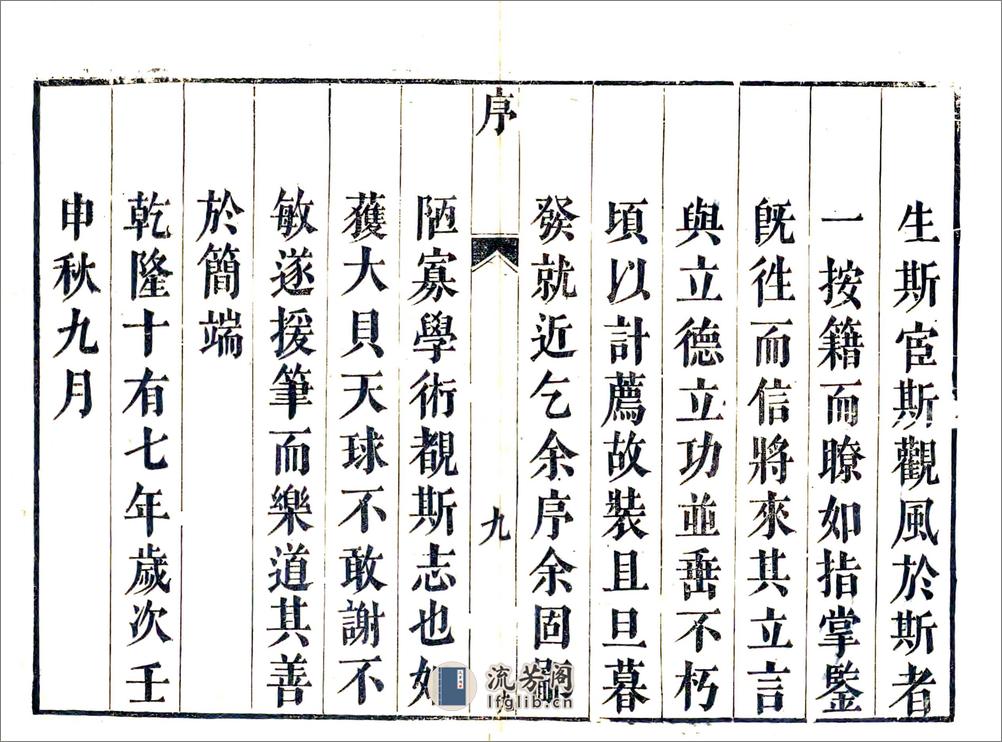 生斯宦斯觀風於斯者
一按籍而瞭如指掌鑒
既徃而信將來其立言
與立德立功並垂不朽
頃以計薦故裝且旦暮
發就近乞余序余固
序
九
陋寡學術覩斯志也如
獲大貝天球不敢謝不
敏遂援筆而樂道其善
於簡端
乾隆十有七年歲次壬
申秋九月
流芳阁
lfglib.cn